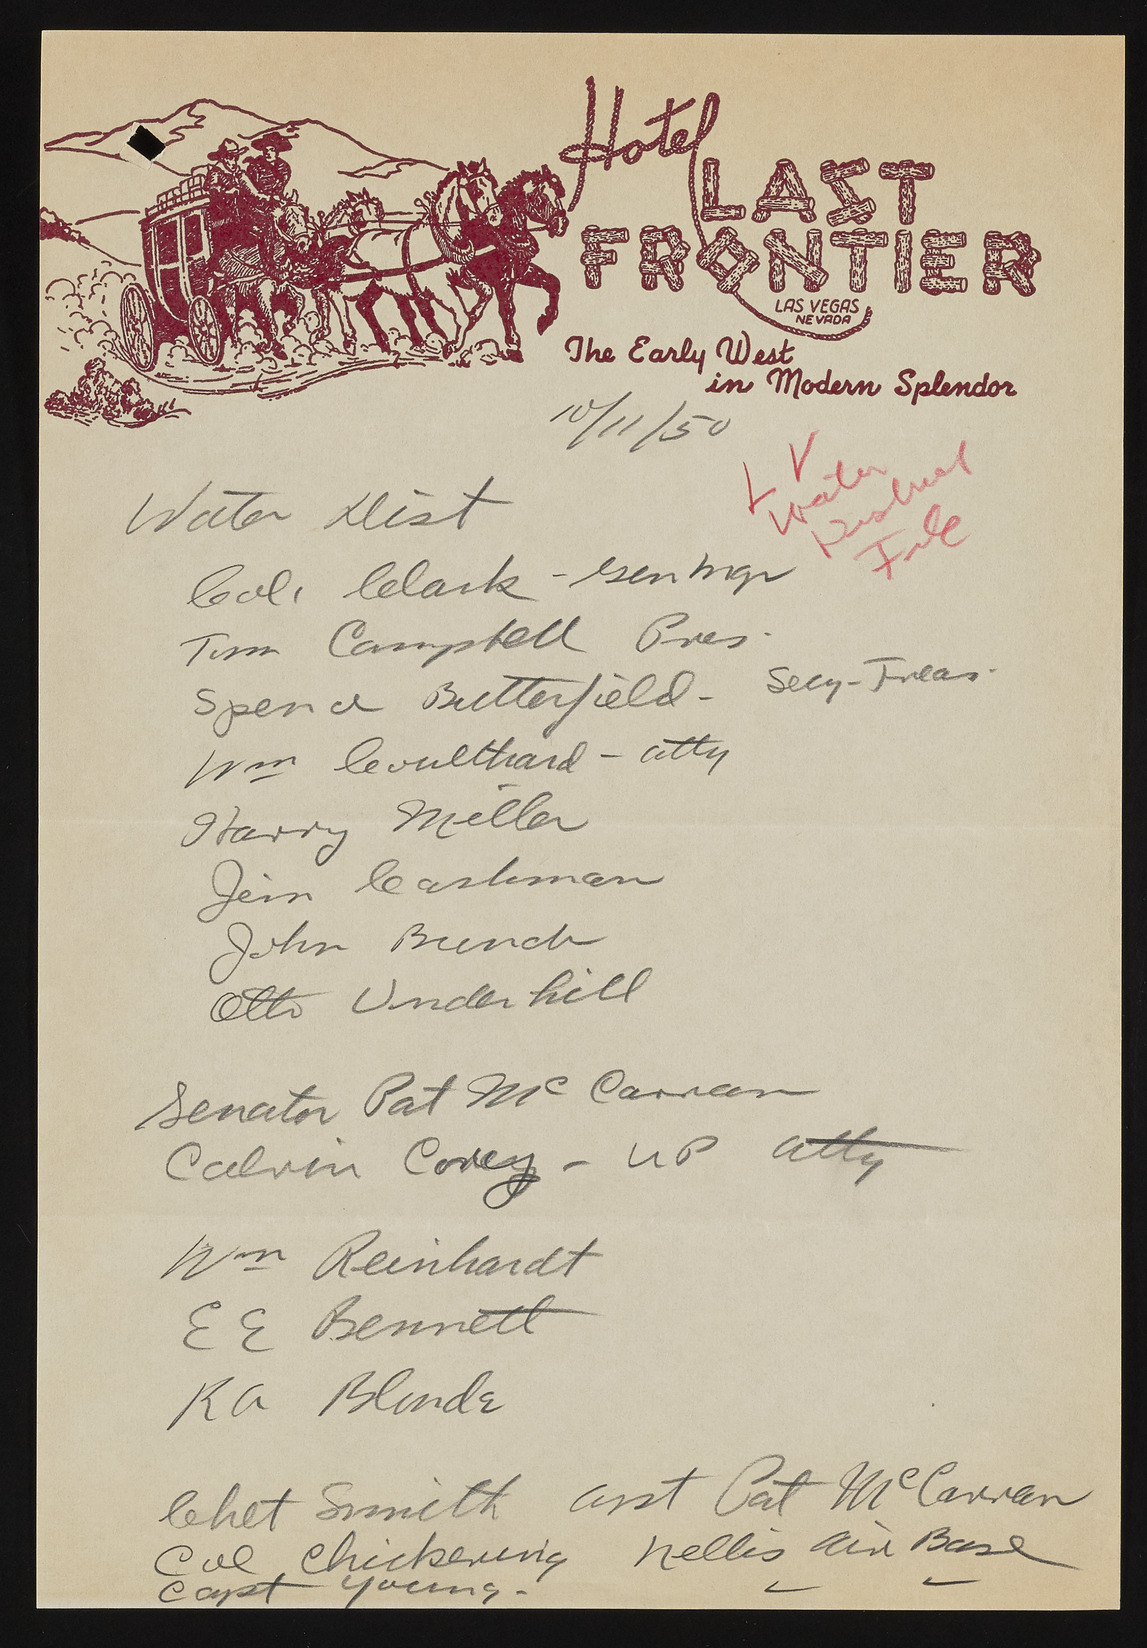 Hotel
LAST
FRONTIER
LAS VEGAS
NEVADA
The Early West
in Modern Splendor
10/11/50
L V
Water
District
File
Water Dist
Col. Clark - Gen Mgr
Tom Campbell Pres.
Spence Butterfield - Secy-Treas.
Wm Coulthard - atty
Harry Miller
Jim Cashman
John Bunch
Otto Underhill
Senator Pat McCarran
Calvin Corey - UP atty
Wm Reinhardt
EE Bennett
RA Blonde
Chet Smith asst Pat McCarran
Col Chickering Nellis Air Base
Capt Young -